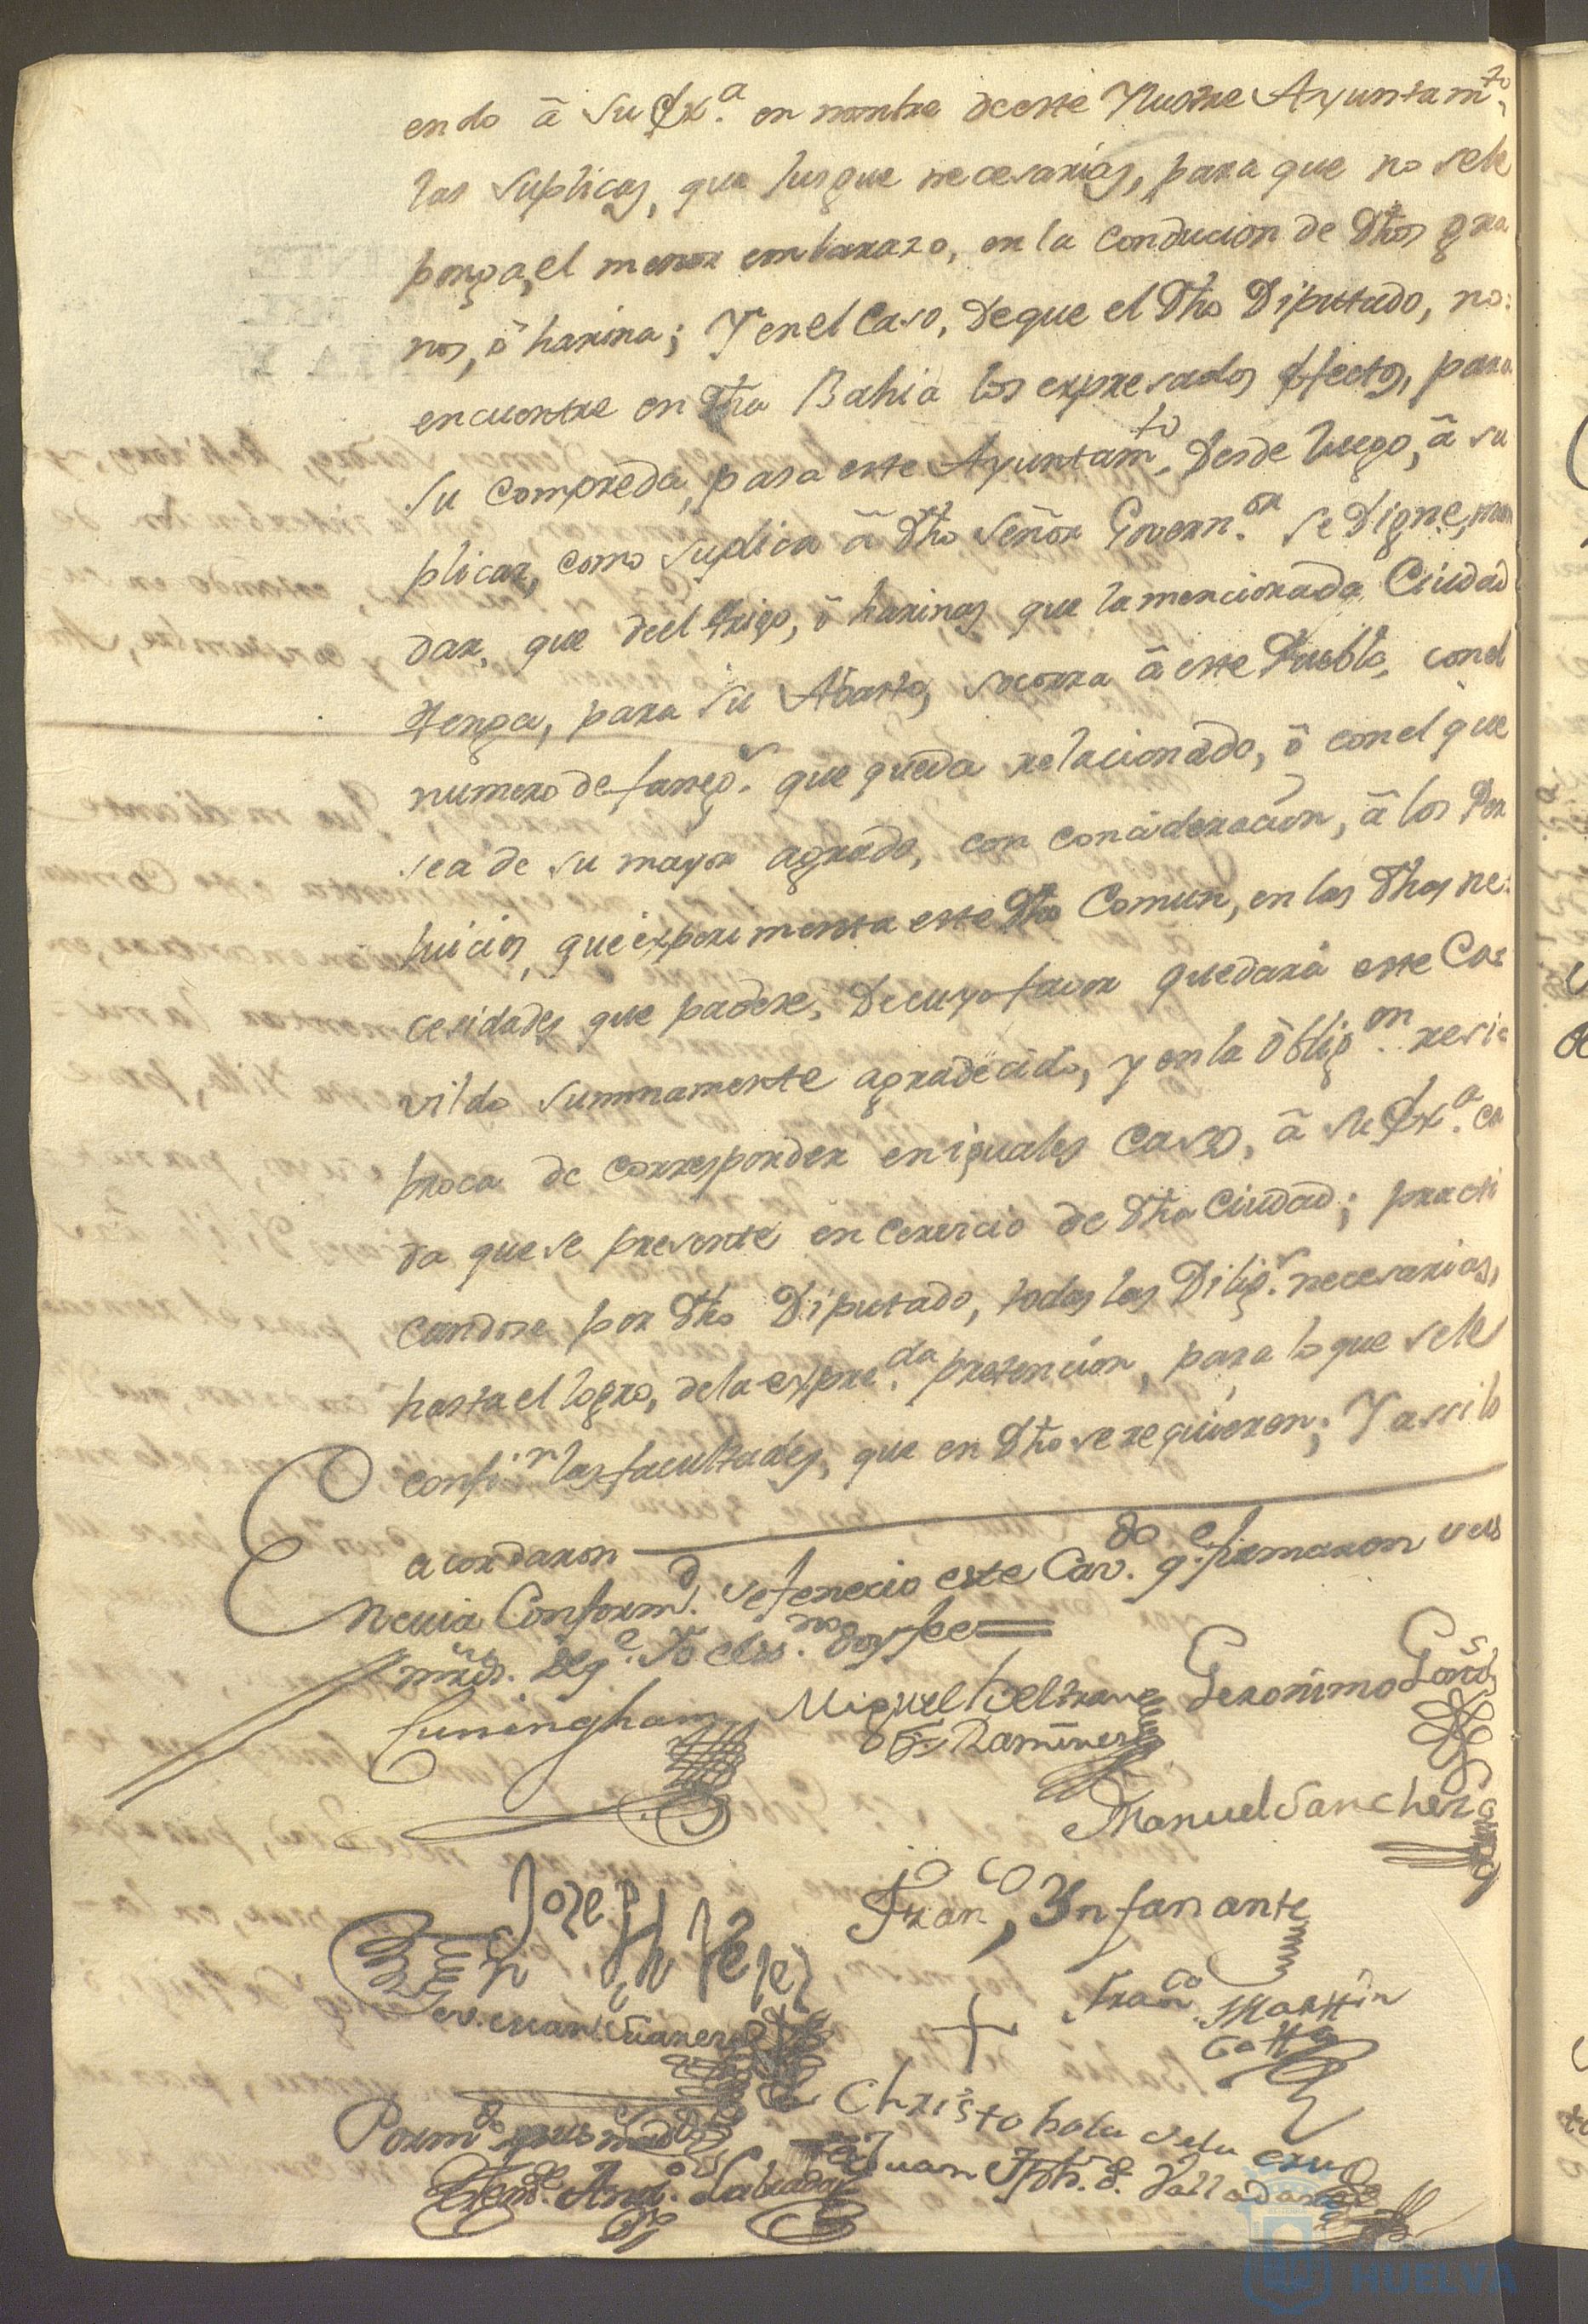 endo â su Ex.a en nombre de este Yllustre Ayuntam.to
las suplicas, que jusgue necesarias, para que no sele
ponga, el menor embarazo, en la conducion de dhos gra
nos, ô harina; Y en el Caso, de que el dho Diputado, no:
encuentre en dha Bahia los expresados efectos, para
su compreda, pasa este Ayuntam.to desde luego, â su
plicar, como suplica â dho señor Govern.or se digne, man
dar, que del trigo, ô harinas que la mencionada Ciudad
tenga, para su Abasto, socorra â este Pueblo, con el
numero de faneg.s que queda relacionado, ô con el que
sea de su mayor agrado, con concideracion, â los Per
juicios, que experimenta este dho Comun, en las dhas ne:
cesidades que padese, de cuyo favor quedará este Ca:
vildo summamente agradecido, y en la oblig.on resi:
proca de corresponder en iguales casos, â su Ex.a ca
da que se presente en Cervicio de dha Ciudad; practi
candose por dho Diputado, todas las Dilig.s necesarias,
hasta el logro, de la expre.da pretencion, para lo que sele
confi.n las facultades, que en dho se requieren; Y assi lo
acordaron
En cuia Conform.d se fenecio este Cav.do q.e firmaron sus
mrds. de q.e Yo el ess.no doy fee
Cuningham
Miguel Beltran
Geronimo
Ramires
Manuel Sanchez
Joseph Velez
Fran.co Ynfanante
Juan Suarez
Fran.co Martin
Christobal de la cruz
Juan Jph. d. Valladares
HUELVA